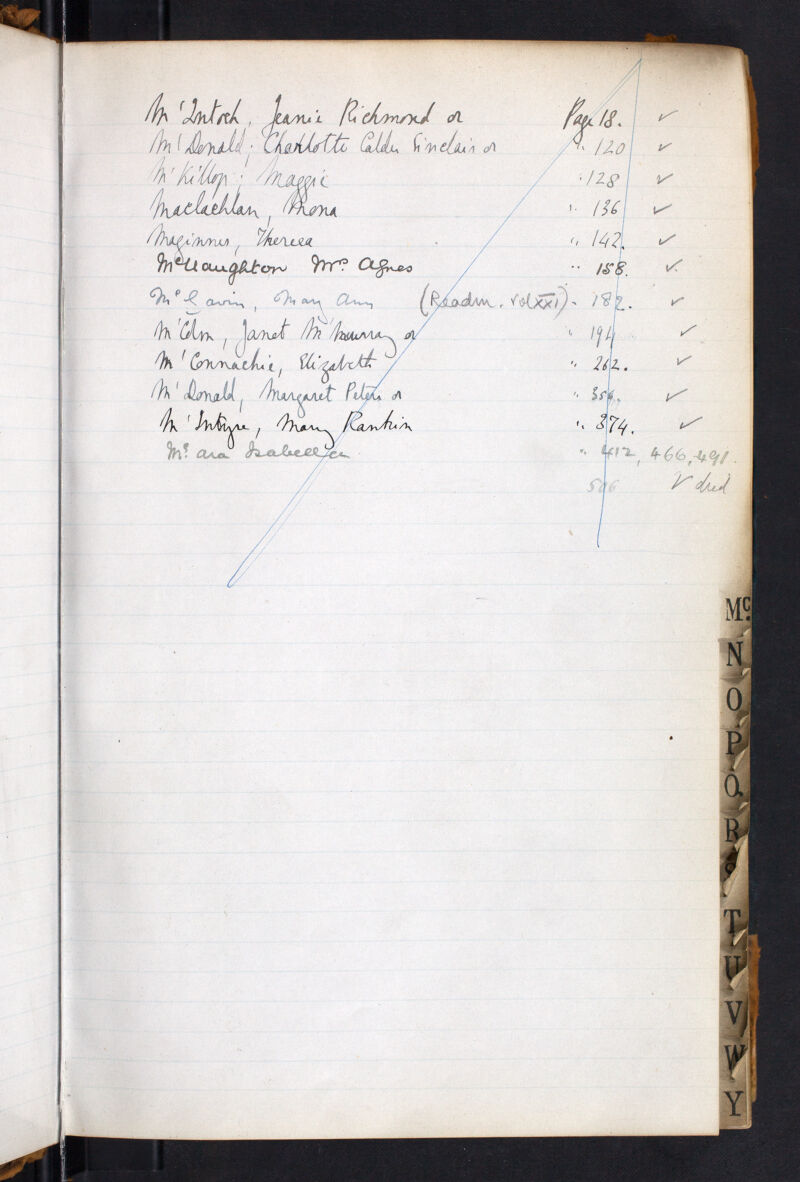 M'Intosh, Jeanie Richmond or Page 18. ✓
M'Donald; Charlotte Calder Sinclair or " 120 ✓
M'Killop; Maggie " 128 ✓
Maclachlan, Rhona " 136 ✓
Maginnes, Theresa " 142. ✓
McNaughton Mrs. Agnes " 158. ✓
Mc Gavin, Mary Ann (Readm. vol XXI) " 182. ✓
M'Colm, Janet M'Murray or " 194 ✓
M'Connachie, Elizabeth " 262. ✓
M'Donald, Margaret Peters or " 354. ✓
M'Intyre, Mary Rankin " 374. ✓
Mc. ara Isabella " 412, 466, 491.
506 ✓ died
Mc.
N
O
P
Q.
R
S
T
U
V
W
Y